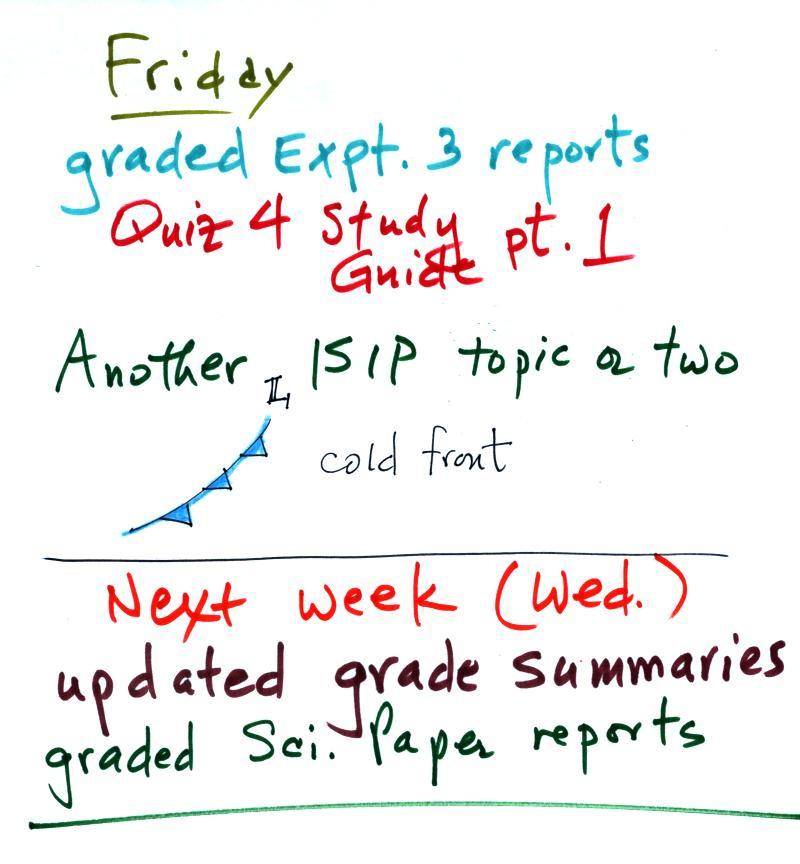 Friday
graded Expt. 3 reports
Quiz 4 Study Guide pt. 1
Another 1S1P topic or two
L
cold front
Next week (Wed.)
updated grade summaries
graded Sci. Paper reports